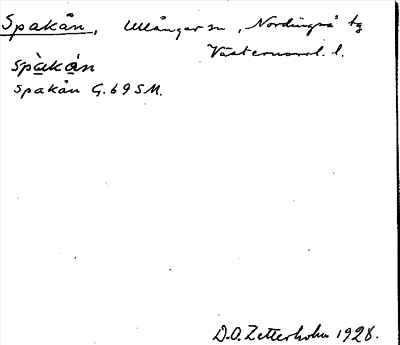 Spakån, Ullånger sn, "Nordingrå" tg
Västernorrl. l.
spàkån
Spakån G.69SM.
D.O. Zetterholm 1928.